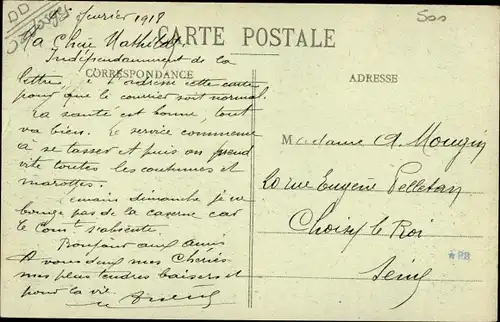 février 1918
CARTE POSTALE
Ma Chère Mathilde
Indépendamment de la
CORRESPONDANCE
ADRESSE
lettre, j'adresse cette carte
pour que le courrier soit normal.
La santé est bonne, tout
va bien. Le service commence
à se tasser et puis on prend
vite toutes les coutumes et
marottes.
Demain dimanche je ne
bouge pas de la caserne car
le Comt s'absente.
Bonjour aux amis
A vous deux mes Chéries
mes plus tendres baisers et
pour la vie.
Madame A. Mougin
20 rue Eugène Pelletan
Choisy le Roi
Seine